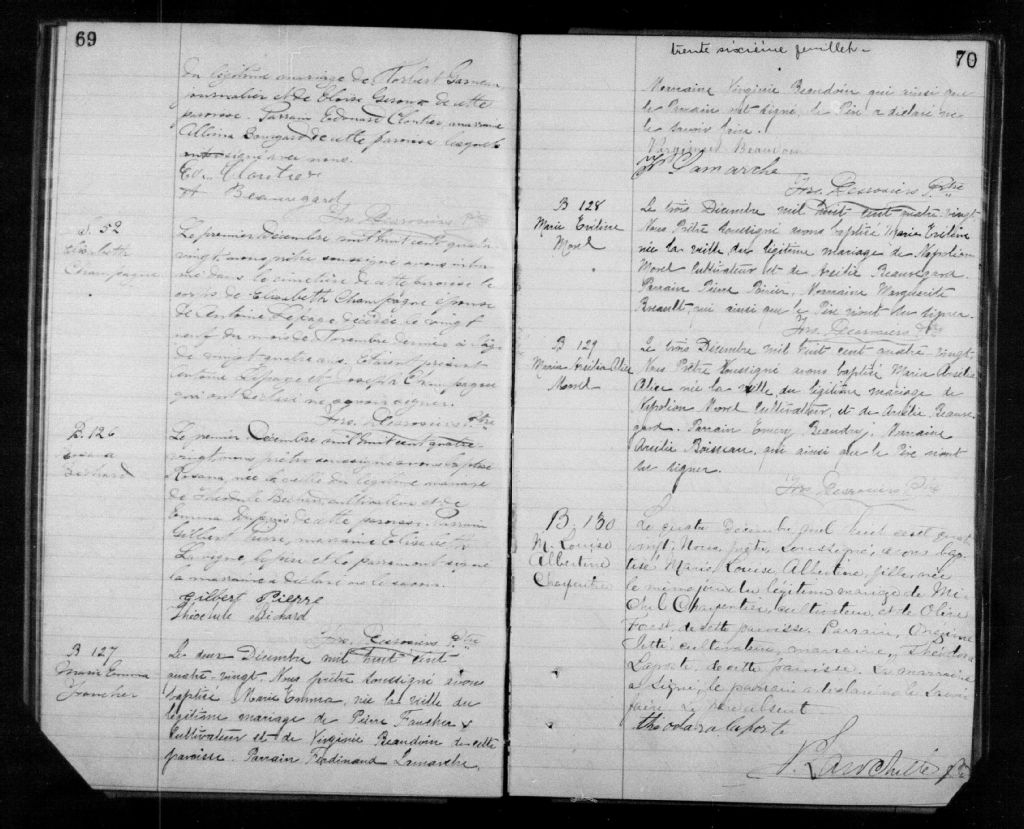 69
du légitime mariage de Norbert Garneau
journalier et de Eloïse Giroux de cette
paroisse. Parrain Edouard Cloutier, marraine
Albina Beauregard de cette paroisse lesquels
signé avec nous.
Ed. Cloutier
A Beauregard
Jos. Desrosiers Ptre
S. 52
Elisabeth
Champagne
Le premier Décembre mil huit cent quatre
vingt, nous prêtre soussigné avons inhu
mé dans le cimetière de cette paroisse le
corps de Elisabeth Champagne épouse
de Antoine Lepage décédée le vingt
neuf du mois de Novembre dernier à l'âge
de vingt quatre ans. Etaient présents
Antoine Lepage et Joseph Champagne
qui ont déclaré ne savoir signer.
Jos. Desrosiers Ptre
B. 126
Rosana
Bechard
Le premier Décembre mil huit cent quatre
vingt, nous prêtre soussigné avons baptisé
Rosana, née la veille du légitime mariage
de Théodule Bechard cultivateur et de
Emma Dupuis de cette paroisse. Parrain
Gilbert Pierre, marraine Elisabeth
Lavigne, le père et le parrain ont signé
la marraine a déclaré ne le savoir.
Gilbert Pierre
Théodule Bechard
Jos. Desrosiers Ptre
B 127
Marie Emma
Faucher
Le deux Décembre mil huit cent
quatre-vingt. Nous prêtre soussigné avons
baptisé Marie Emma, née la veille du
légitime mariage de Pierre Faucher
Cultivateur et de Virginie Beaudoin de cette
paroisse. Parrain Ferdinand Lamarche,
trente sixième feuillet
70
Marraine Virginie Beaudoin qui ainsi que
le Parrain ont signé, le Père a déclaré ne
le savoir faire.
Virginie Beaudoin
F Lamarche
Jos. Desrosiers Ptre
B 128
Marie Eveline
Morel
Le trois Décembre mil huit cent quatre vingt
Nous Prêtre soussigné avons baptisé Marie Eveline
née la veille du légitime mariage de Napoléon
Morel Cultivateur et de Azélie Beauregard.
Parrain Pierre Poirier, Marraine Marguerite
Breault, qui ainsi que le Père n'ont su signer.
Jos. Desrosiers Ptre
B 129
Maria Azélia Alice
Morel
Le trois Décembre mil huit cent quatre-vingt.
Nous Prêtre Soussigné avons baptisé Maria Azélia
Alice née la veille du légitime mariage de
Napoléon Morel Cultivateur, et de Azélie Beaure
gard. Parrain Emery Beaudry, Marraine
Azélie Boisseau, qui ainsi que le Père n'ont
su signer.
Jos. Desrosiers Ptre
B. 130
M. Louise
Albertine
Charpentier
Le quatre Décembre mil huit cent quatre
vingt, Nous, prêtre, Soussigné, avons bap
tisé Marie, Louise, Albertine, fille, née
le même jour du légitime mariage de Mi
chel Charpentier, cultivateur, et de Olive
Forest de cette paroisse. Parrain, Onésime
Jetté, cultivateur, marraine, Théodora
Laporte de cette paroisse. La marraine
a signé, le parrain a déclaré ne le savoir
faire. Le père absent
théodora laporte